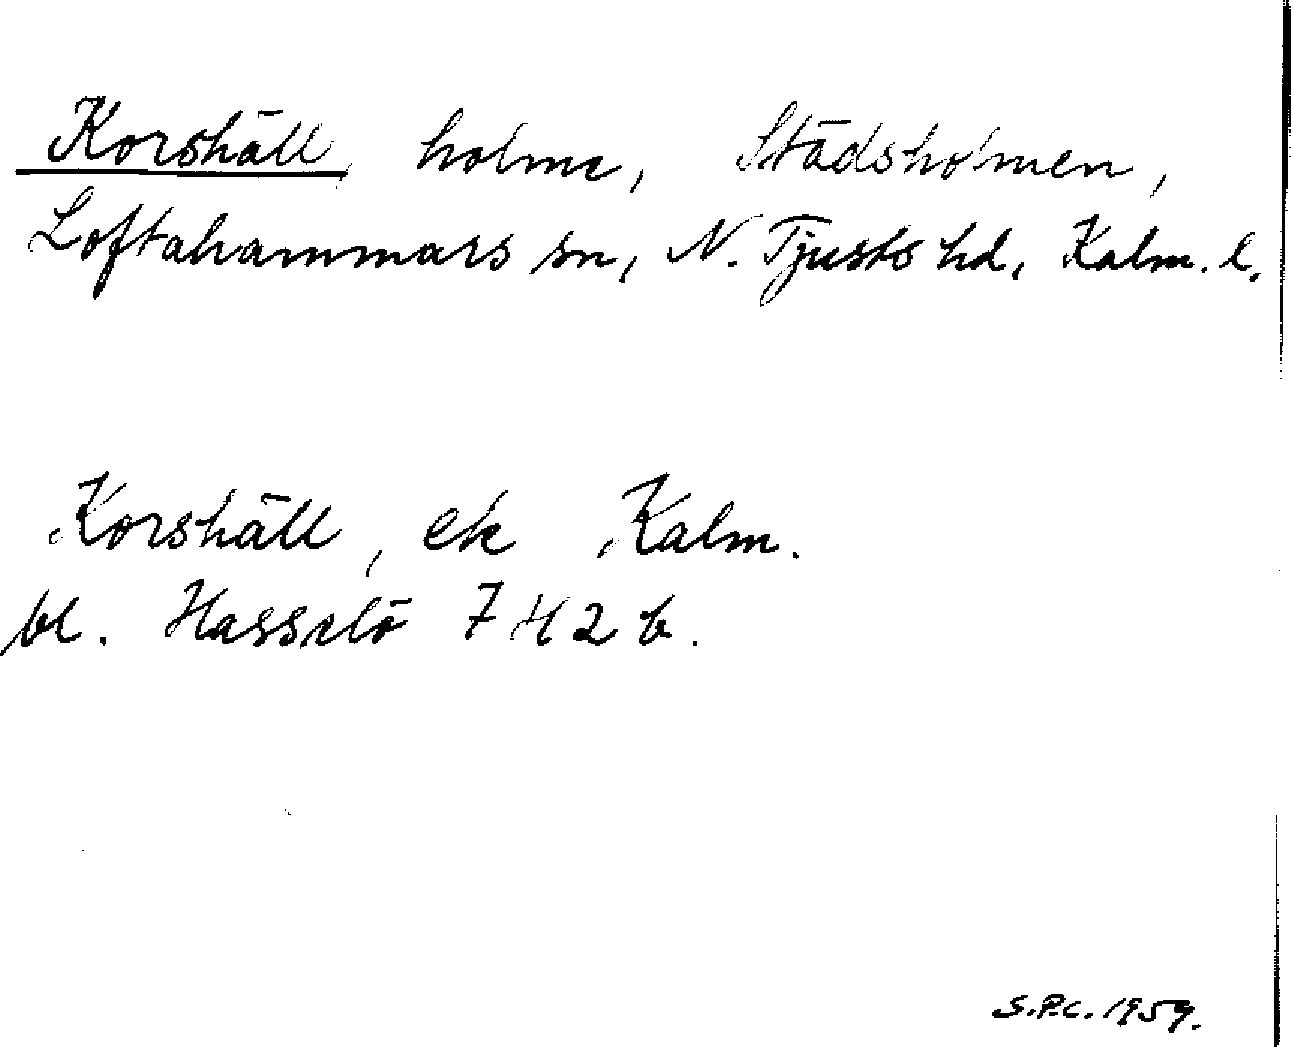 Korshäll, holme, Städsholmen,
Loftahammars sn, N. Tjusts hd, Kalm. l.
Korshäll, ek Kalm.
bl. Hasselö 7 H 2 b.
S.P.C. 1959.